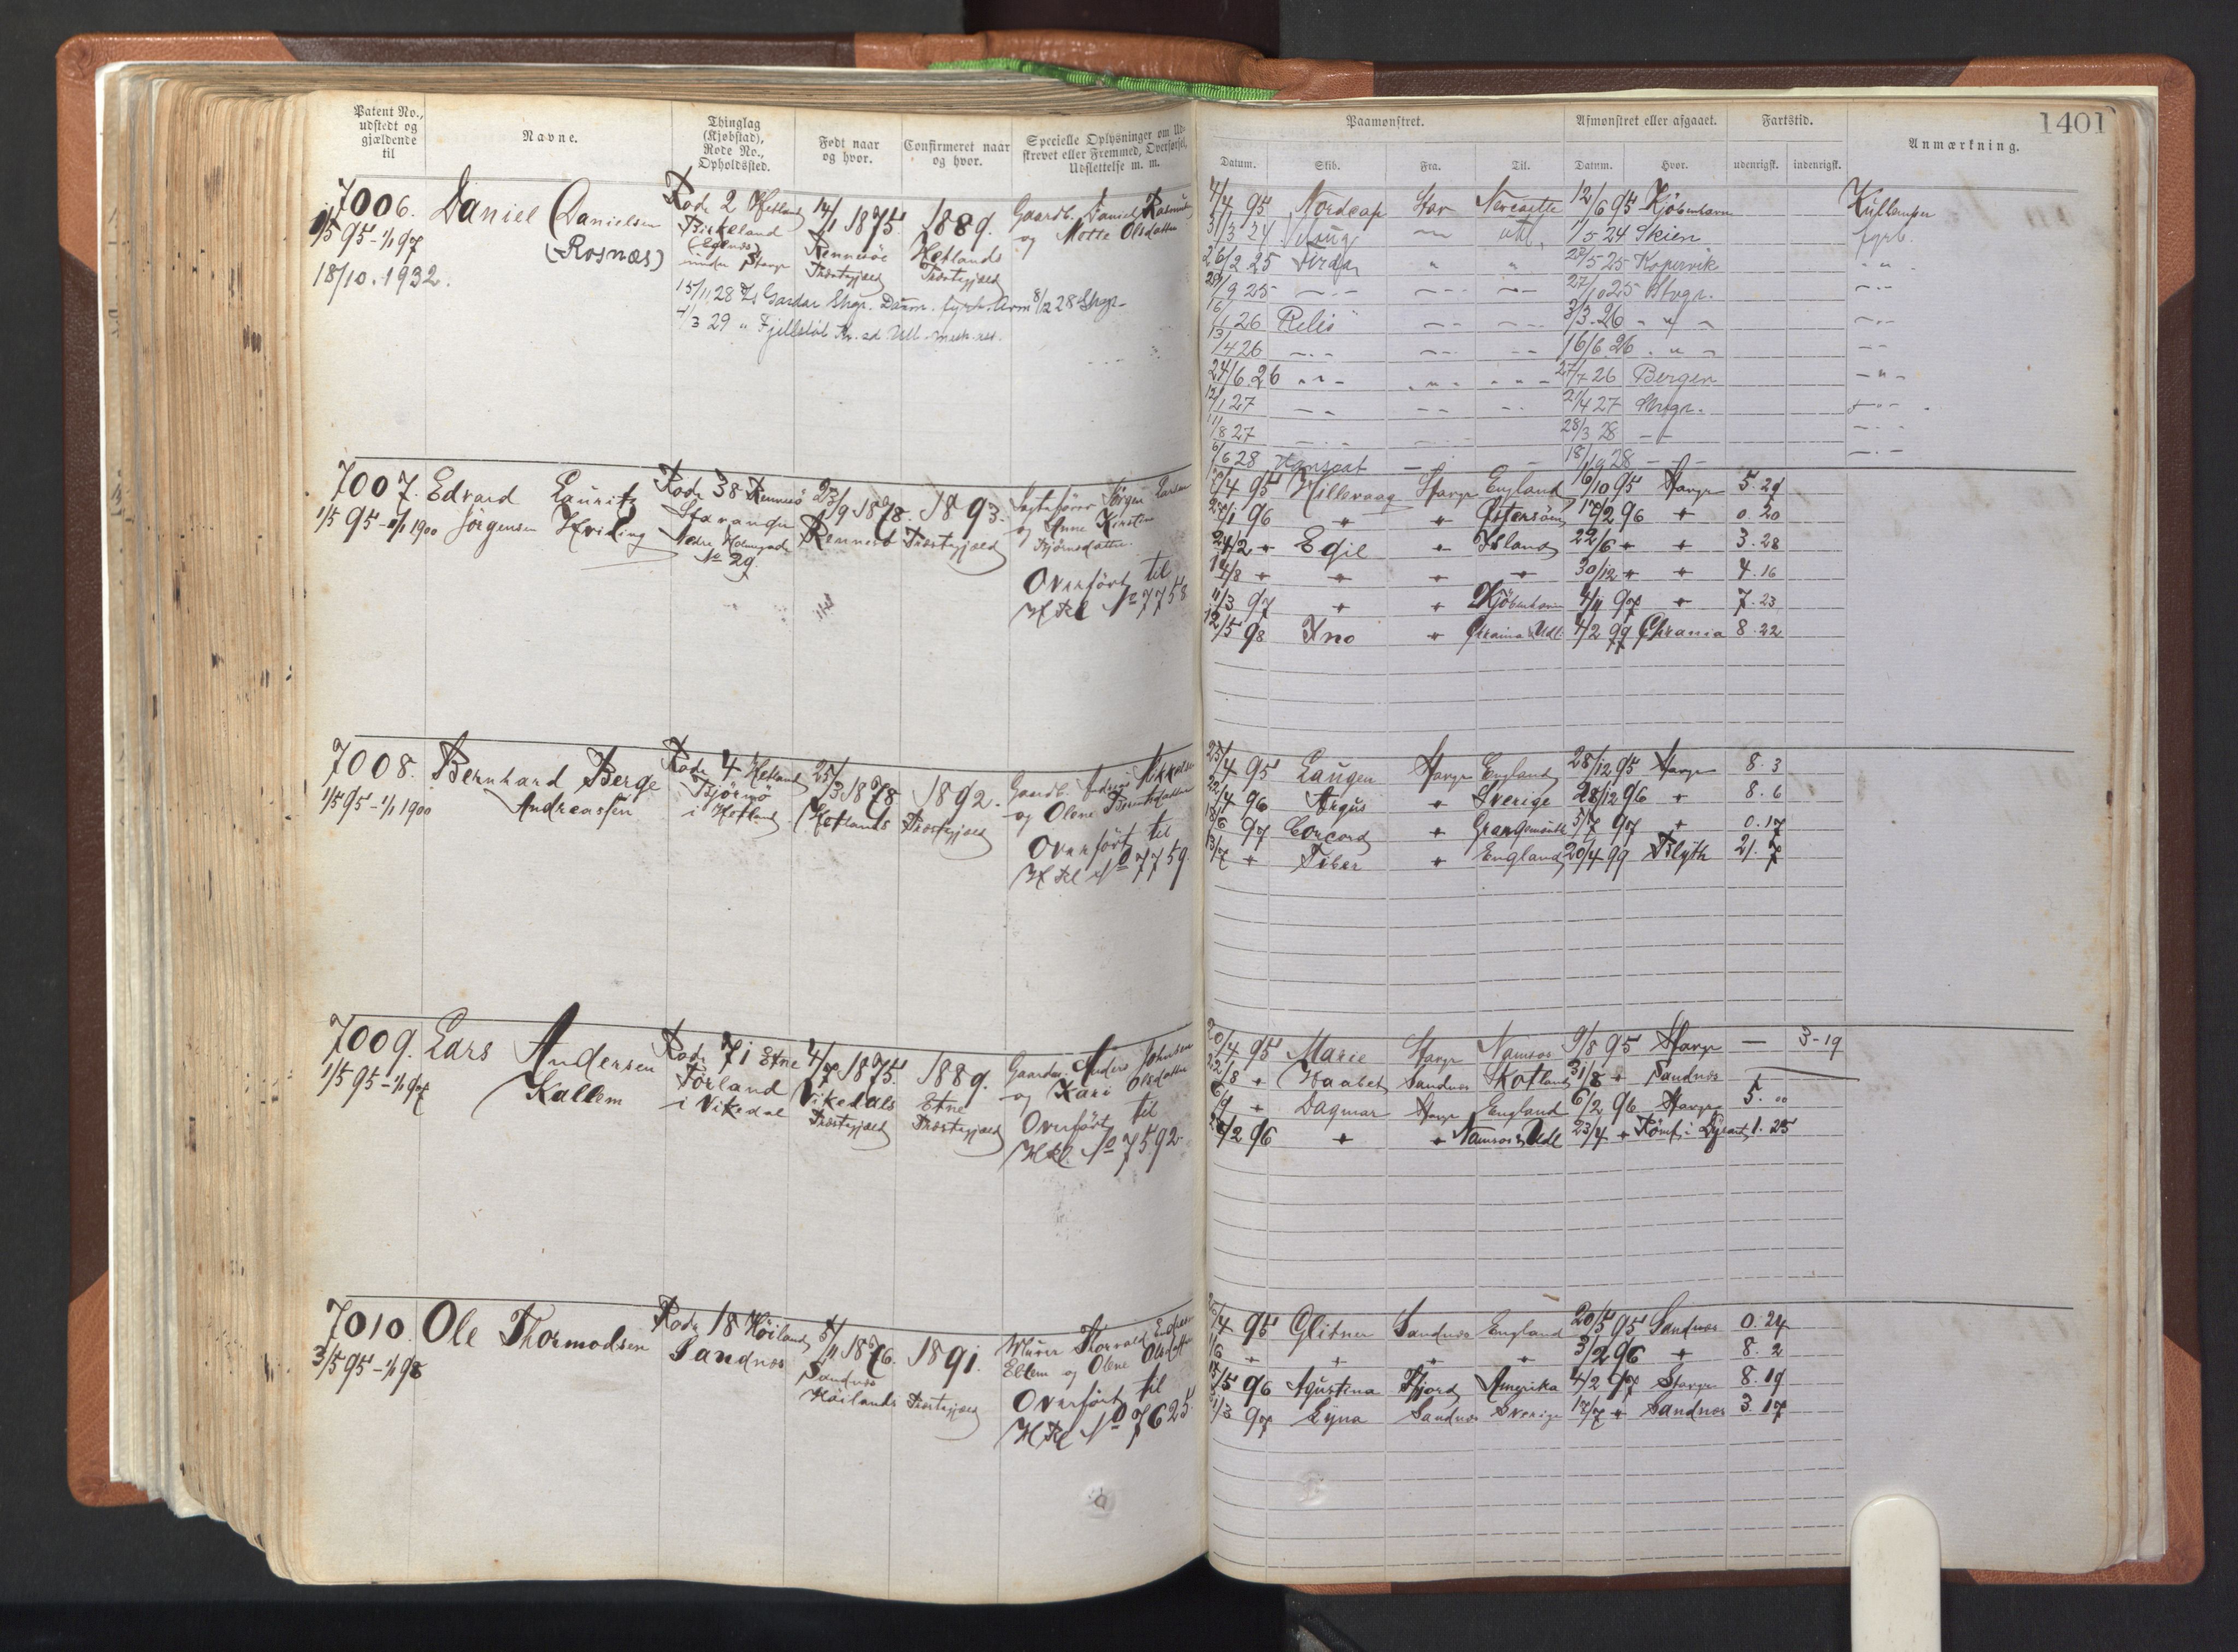 Patent No.,
udstedt og
gjældende
til
Navne.
Thinglag
(Kjøbstad),
Rode No.,
Opholdssted.
Født naar
og hvor.
Confirmeret naar
og hvor.
Specielle Oplysninger om Ud-
skrevet eller Fremmed, Overførsel,
Udslettelse m. m.
7006.
1/5 95 - 1/1 97
18/10. 1932.
Daniel Danielsen
(Rosnæs)
Rode 2 Hetland
Birkeland
(Egenæs)
under Stavgr
14/1 1875.
Rennesöe
Præstegjæld
1889.
Hetlands
Præstegjæld
Gaardb. Daniel
og Mette Olsdatter
15/11 28 Gardar Shgr. 8/12 28
4/3 29 " Fjellstöl
7007.
1/5 95 - 1/1 1900
Edvard Lauritz
Jörgensen Hviding
Rode 38 Rennesö
Stavanger
Nedre Holmegade
No 29
23/9 1878.
Rennesö
1893.
Præstegjæld
Jörgen Larsen
og Anne Kirstine
Bjørnsdatter
Overført til
H Rl No 7758
7008.
1/5 95 - 1/1 1900
Bernhard Berge
Andreassen
Rode 4 Hetland
Bjørnö
i Hetland
25/3 1878
Hetlands
1892.
Præstegjæld
Gaardb.
og Olene
Overført til
H Rl No 7759
7009.
1/5 95 - 1/1 97
Lars Andersen
Kallem
Rode 71 Etne
Förland
i Vikedal
4/7 1875.
Vikedals
Præstegjæld
1889.
Etne
Præstegjæld
Anders Johnsen
og Kari Olsdatter
Overført til
H Rl. No 7592
7010.
3/5 95 - 1/1 98
Ole Thormodsen
Rode 18 Höiland
Sandnæs
5/11 1876.
Sandnæs
Höilands
1891.
Præstegjæld
Murer
og Olene Olsdatter
Overført til
H Rl No 7625
1401
Paamønstret.
Afmønstret eller afgaaet.
Fartstid.
Anmærkning.
Datum.
Skib.
Fra.
Til.
Datum.
Hvor.
udenrigsk.
indenrigsk.
4/4 95 Nordcap Stav Newcastle 12/6 95 Kjöbenhavn Kullemper
3/3 24 utl. 1/5 24 Skien fyrb.
26/2 25 " " 28/5 25 Kopervik - " -
29/9 25 - - - 27/10 25 - " -
16/1 26 Relis - - 3/3. 26 - " -
13/4 26 - - - 16/6. 26 - " -
24/6. 26 - " - - " - - " - 27/7 26 Bergen - " -
12/1 27 - - - 27/4 27
11/8 27 - - 28/3 28 - -
6/6 28 - - 18/9 28 - -
4/4 95 Hillevaag Stavgr England 16/10 95 Stavgr 5. 29
27/1 96 " " Østersöen 17/2 96 " 0. 20
24/2 " Egil " Island 22/6 " " 3. 28
14/8 " " " " 30/12 " " 4. 16
11/3 97 " " Kjöbenhavn 4/11 97 " 7. 23
12/5 98 Fno " Utl. 4/2 99 Chrania 8. 22
25/4 95 Laugen Stavgr England 28/12 95 Stavgr 8. 3
22/4 96 Argus " Sverige 28/12 96 " 8. 6
18/6 97 Concord " Grangemouth 5/7 97 " 0. 17
13/7 " Tiber " England 20/4 99 Blyth 21. 7
20/4 95 Marie Stavgr Namsos 9/8 95 Stavgr — 3-19
22/8 " Haabet Sandnæs Skotland 31/8 " Sandnæs
6/9 " Dagmar Stavgr England 6/2 96 Stavgr 5. 00
2/2 96 " " Namsos & Udl 23/4 " Rømt i Dysart, 1. 25
26/4 95 Glitner Sandnæs England 20/5 95 Sandnæs 0. 24
1/6 " " " " 3/2 96 " 8. 2
15/5 96 Agustina Fjord Amerika 4/2 97 Stavgr 8. 19
31/3 97 Lyna Sandnæs Sverige 17/7 " Sandnæs 3. 17